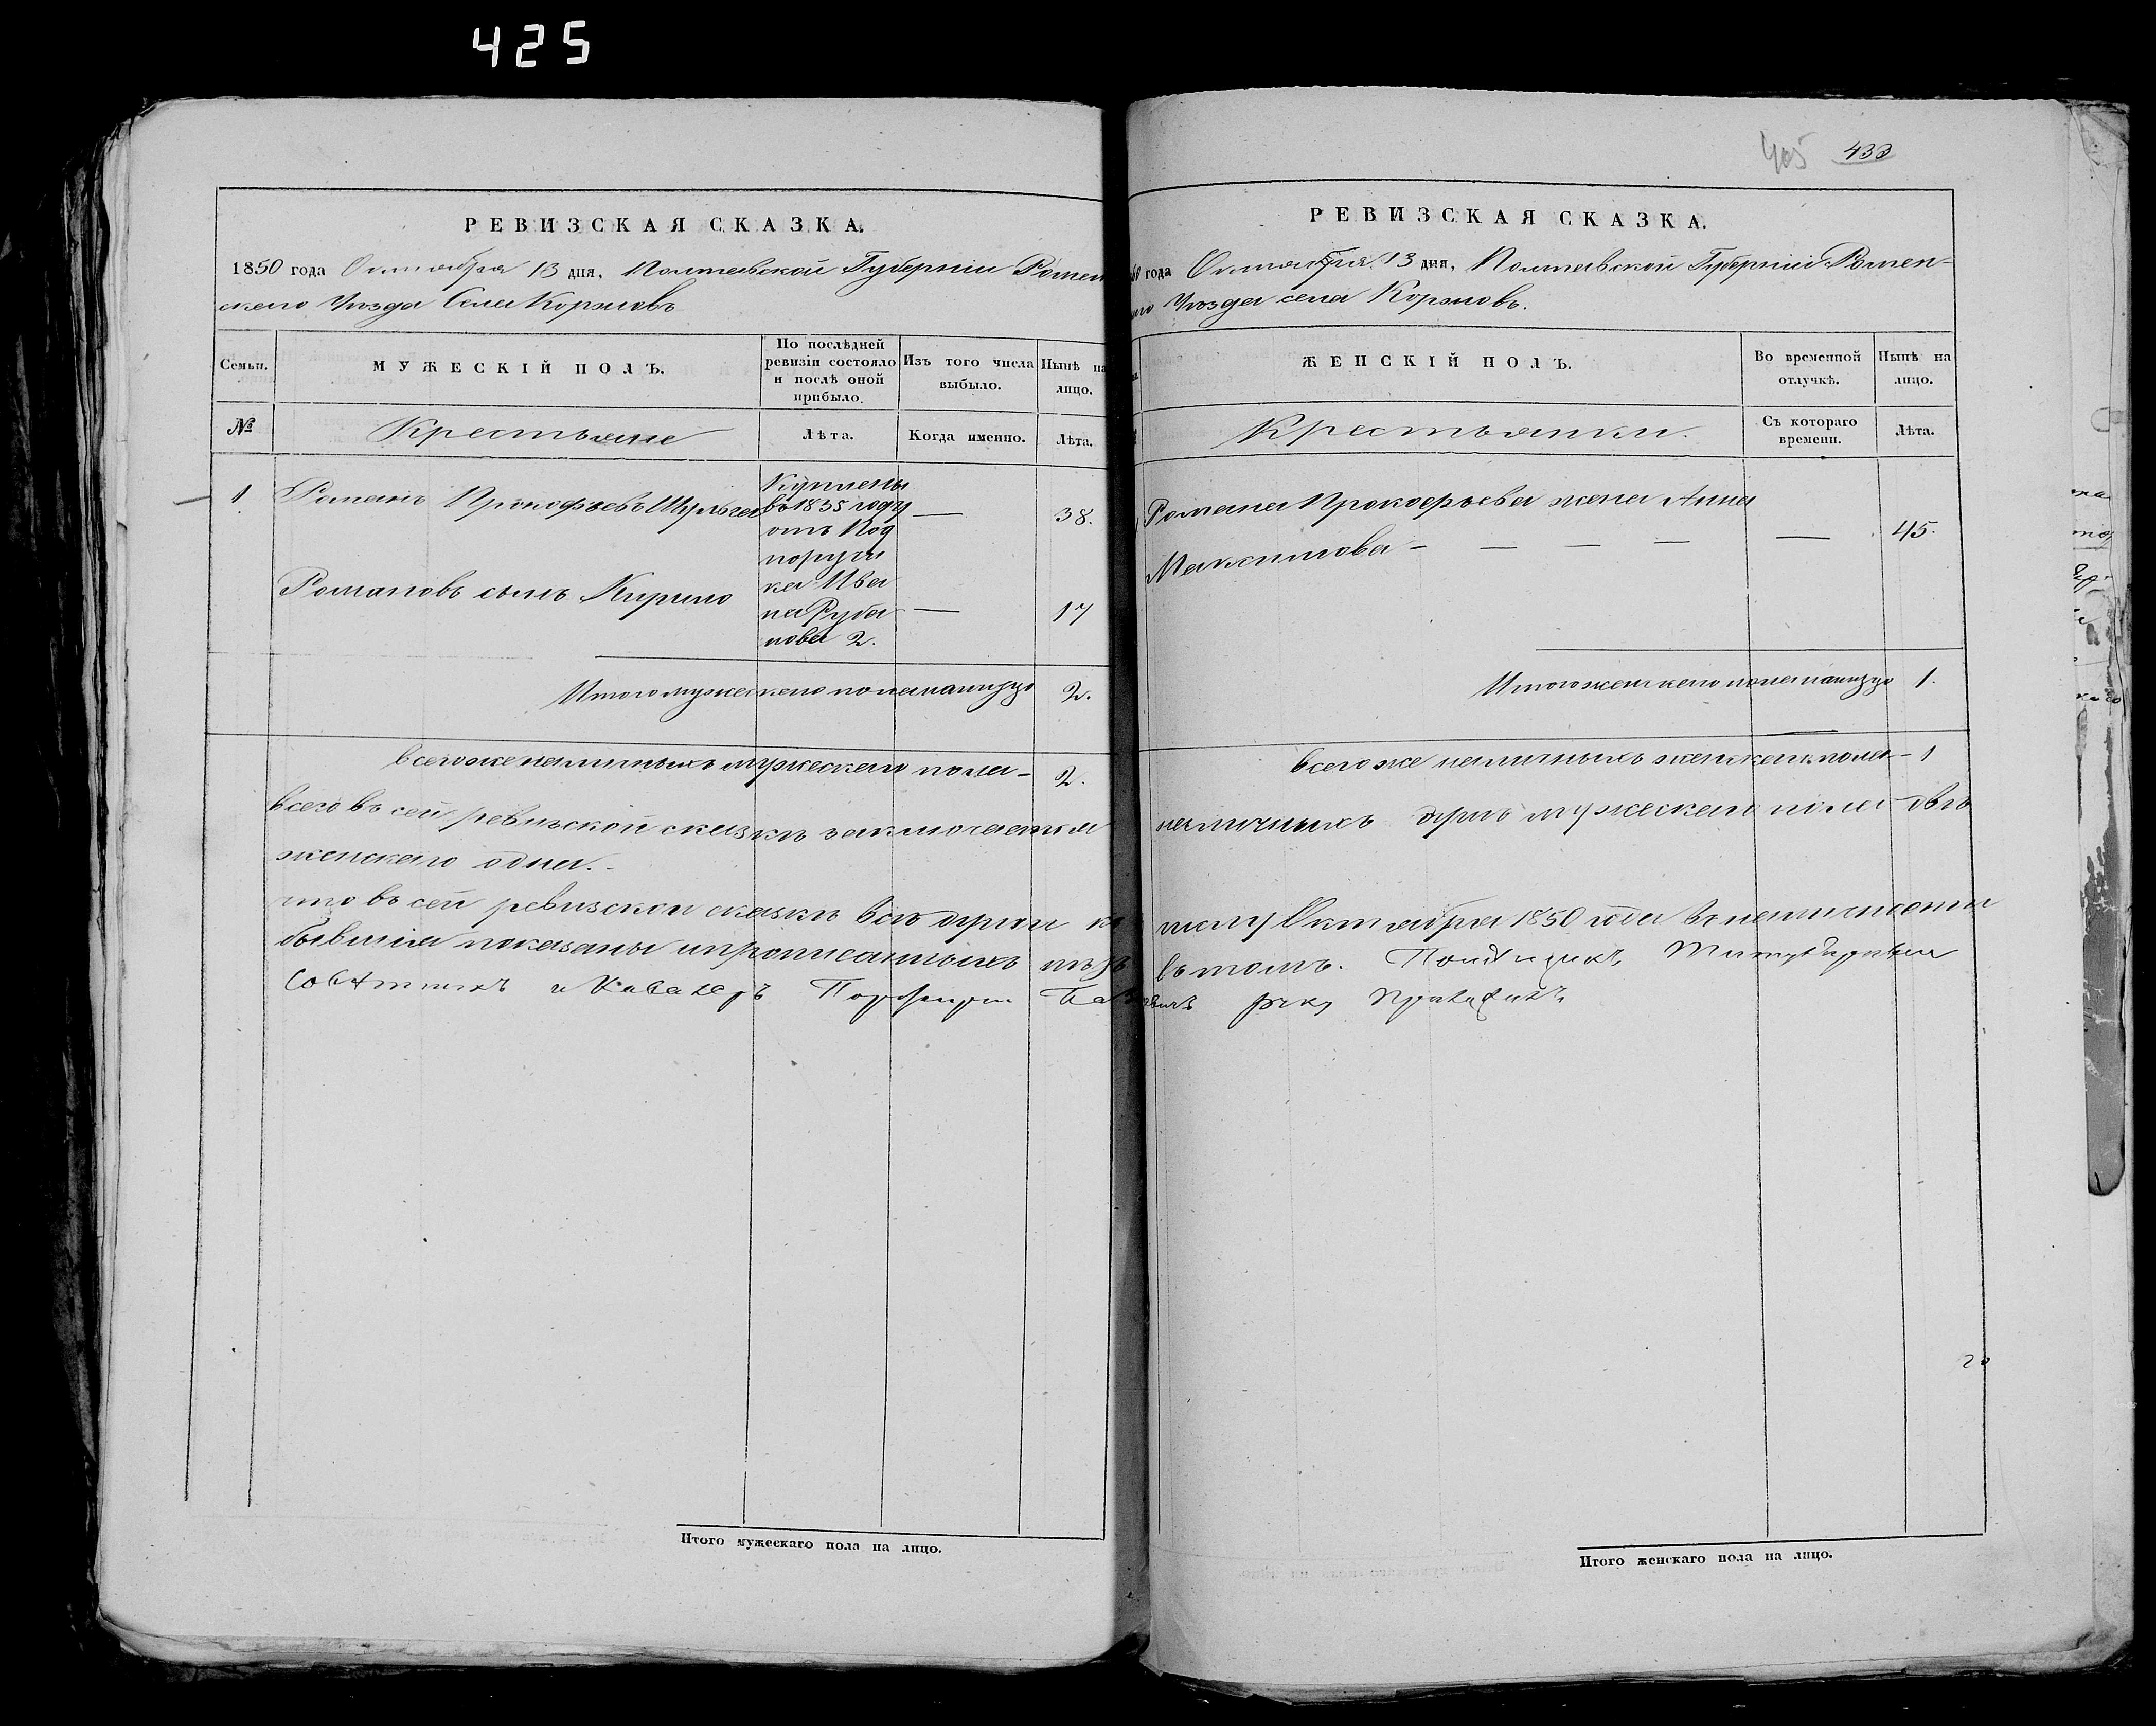 425
РЕВИЗСКАЯ СКАЗКА.
1850 года Октября 13 дня, Полтавской Губернiи Ромен
скаго Уѣзда Села Коржовъ
Семьи.
МУЖЕСКIЙ ПОЛЪ.
По послѣдней ревизiи состояло и послѣ оной прибыло.
Изъ того числа выбыло.
Нынѣ на лицо.
№
Крестьяне
Лѣта.
Когда именно.
Лѣта.
1
Романъ Прокофьевъ Шульга
Куплены
въ 1835 году
отъ Под
поручи
ка Ива
на Руба
нова 2.
—
38.
Романовъ сынъ Кирило
—
17
Итого мужескаго пола налицо
2.
Всего же наличныхъ мужескаго пола —
2.
Всего въ сей ревизской сказкѣ заключается
женскаго одна.
что въ сей ревизской сказкѣ всѣ души к
бывшiя показаны и прописанныхъ нѣтъ
Совѣтникъ и Кавалеръ
Итого мужескаго пола на лицо.
405 433
РЕВИЗСКАЯ СКАЗКА.
50 года Октября 13 дня, Полтавской Губернiи Ромен-
аго Уѣзда села Коржовъ.
ЖЕНСКIЙ ПОЛЪ.
Во временной отлучкѣ.
Нынѣ на лицо.
Крестьянки.
Съ котораго времени.
Лѣта.
Романа Прокофьева жена Анна
Максимова — — — — —
45.
Итого женскаго пола налицо
1.
Всего же наличныхъ женскаго пола —
1
наличныхъ душъ мужескаго пола двѣ
числу Октября 1850 года въ
въ томъ.
руку приложилъ
20
Итого женскаго пола на лицо.